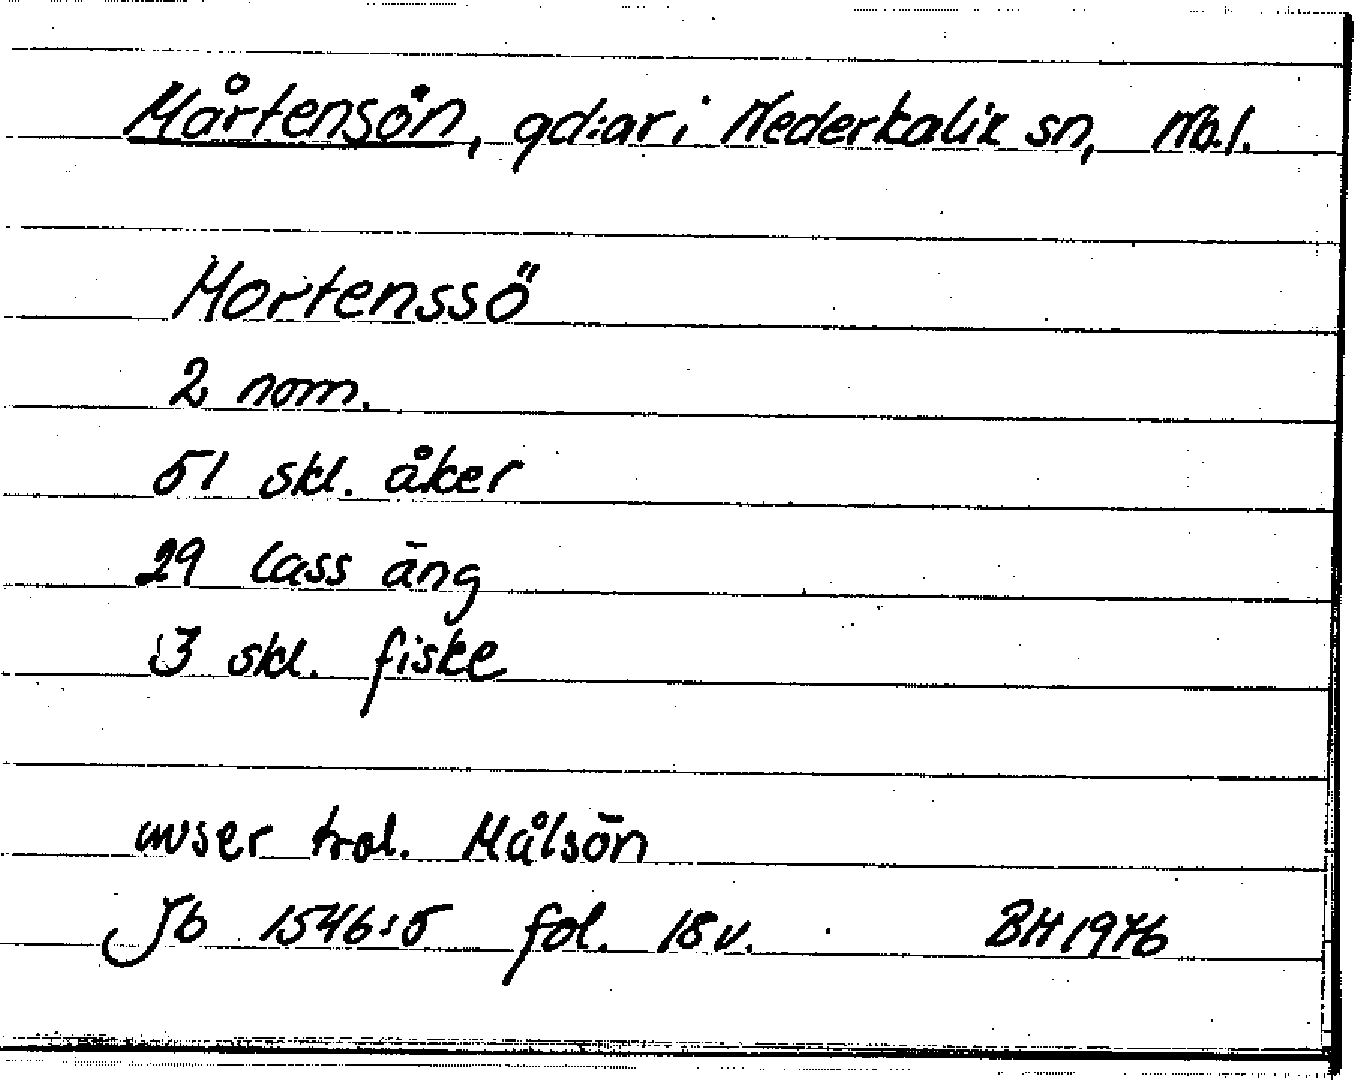 Mårtensön, gd:ar i Nederkalix sn, Nb.l.
Mortenssö
2 nom.
51 skl. åker
29 lass äng
3 skl. fiske
avser trol. Målsön
Jb 1546:5 fol. 18v. BH 1976